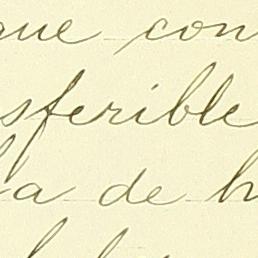 que con
sferible
a de h